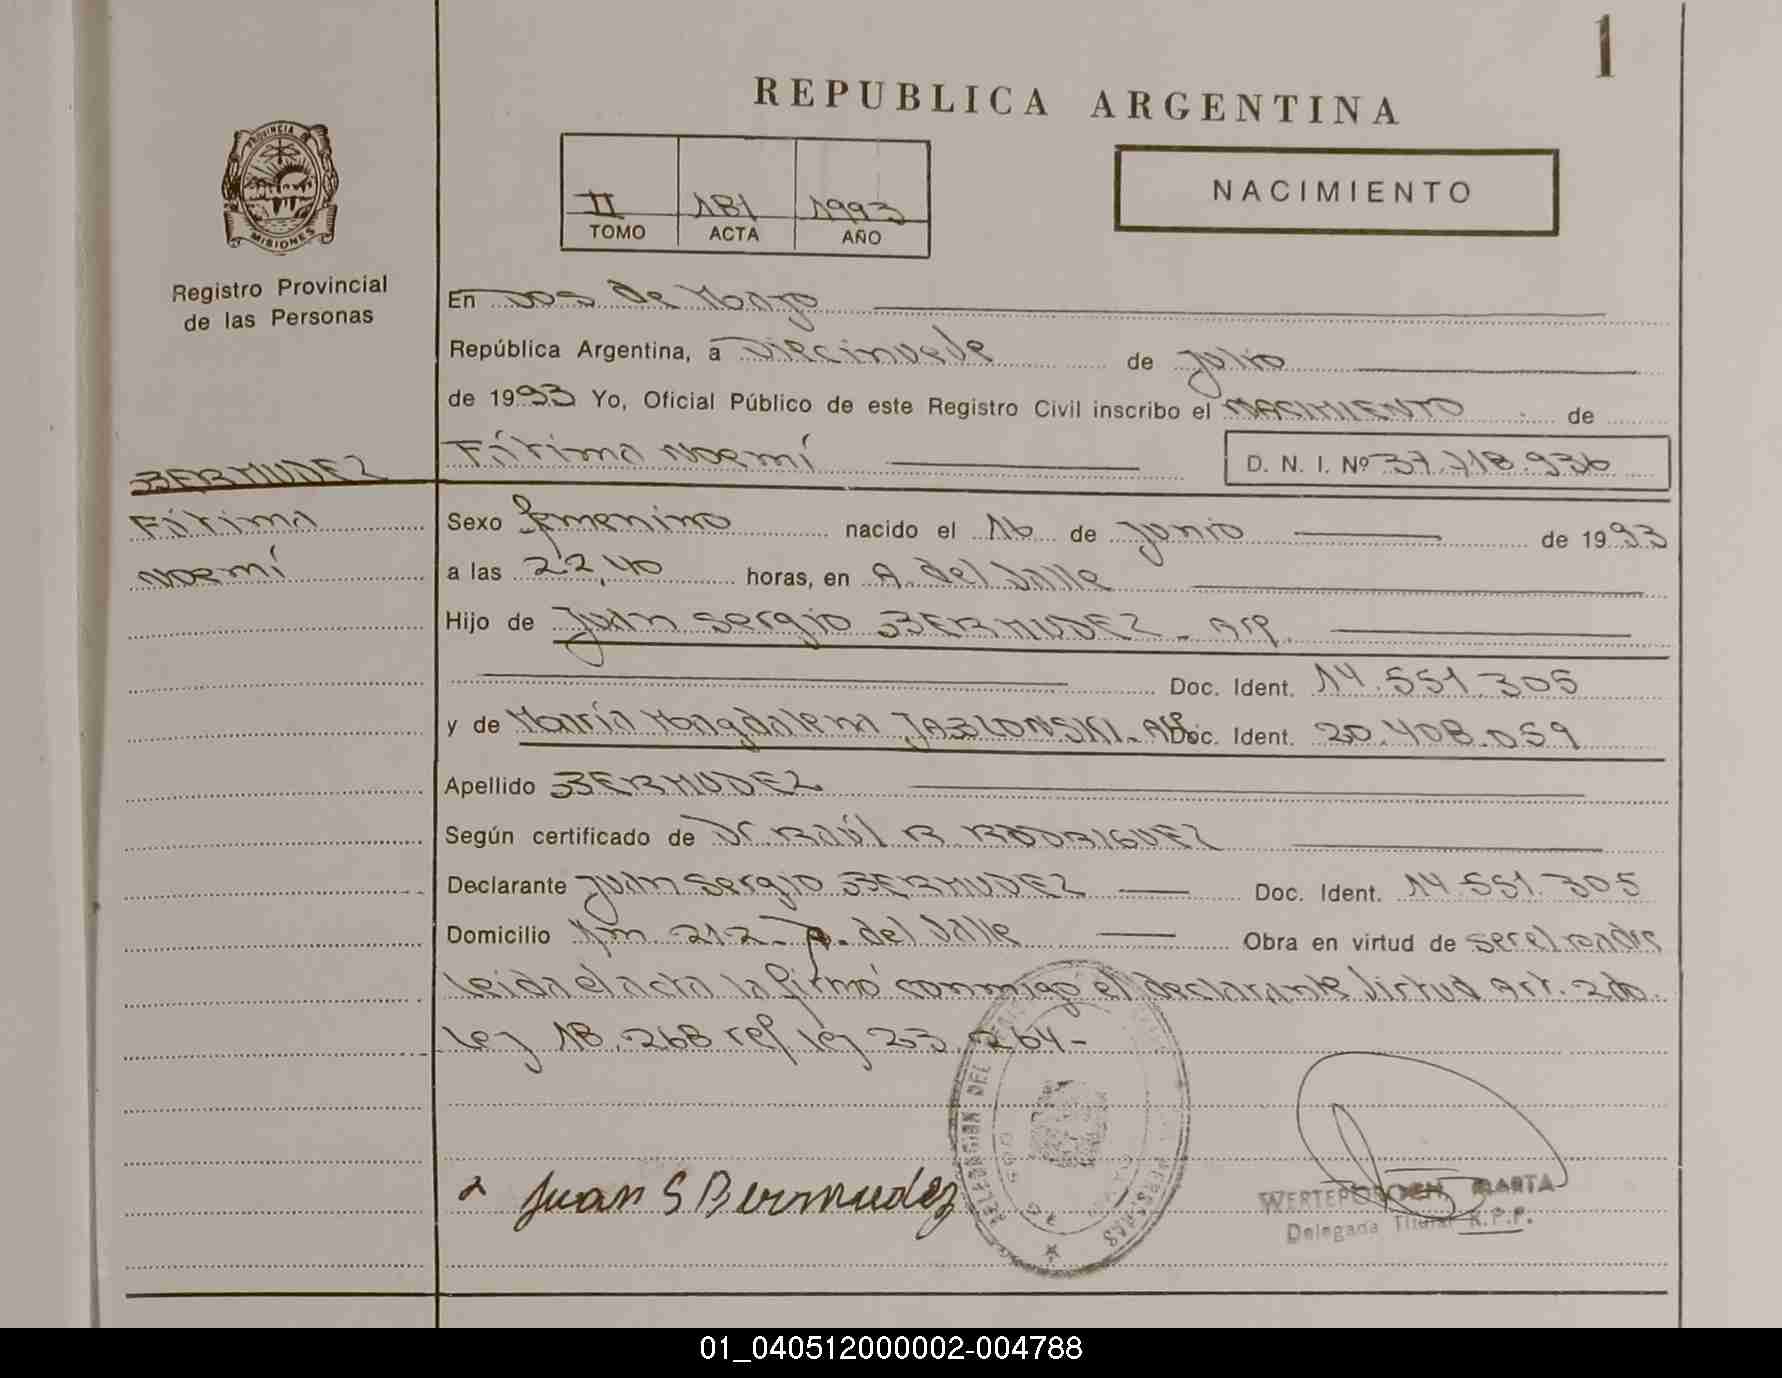 1
REPUBLICA ARGENTINA
PROVINCIA DE
MISIONES
II 181 1993
TOMO ACTA AÑO
NACIMIENTO
Registro Provincial
de las Personas
En Dos de Mayo
República Argentina, a Diecinueve de julio
de 1993 Yo, Oficial Público de este Registro Civil inscribo el NACIMIENTO de
BERMUDEZ Fátima Noemí D. N. I. Nº 37.718.936
Fátima Sexo femenino nacido el 16 de junio de 1993
Noemí a las 22,40 horas, en A. del Valle
Hijo de Juan Sergio BERMUDEZ - Arg.
Doc. Ident. 14.551.305
y de María Mangdalena JABLONSKI - Arg. Doc. Ident. 20.408.059
Apellido BERMUDEZ
Según certificado de Dr. Raúl R. RODRIGUEZ
Declarante Juan Sergio BERMUDEZ Doc. Ident. 14.551.305
Domicilio Km 212 - A. del Valle Obra en virtud de ser el padre
Leida el acta la firmó conmigo el declarante Virtud Art. 2do.
Ley 18.268 ref ley 23.264-
Juan S Bermudez
DELEGACION DEL PERSONAS
MARTA
Delegada Titular R.P.P.
01_040512000002-004788